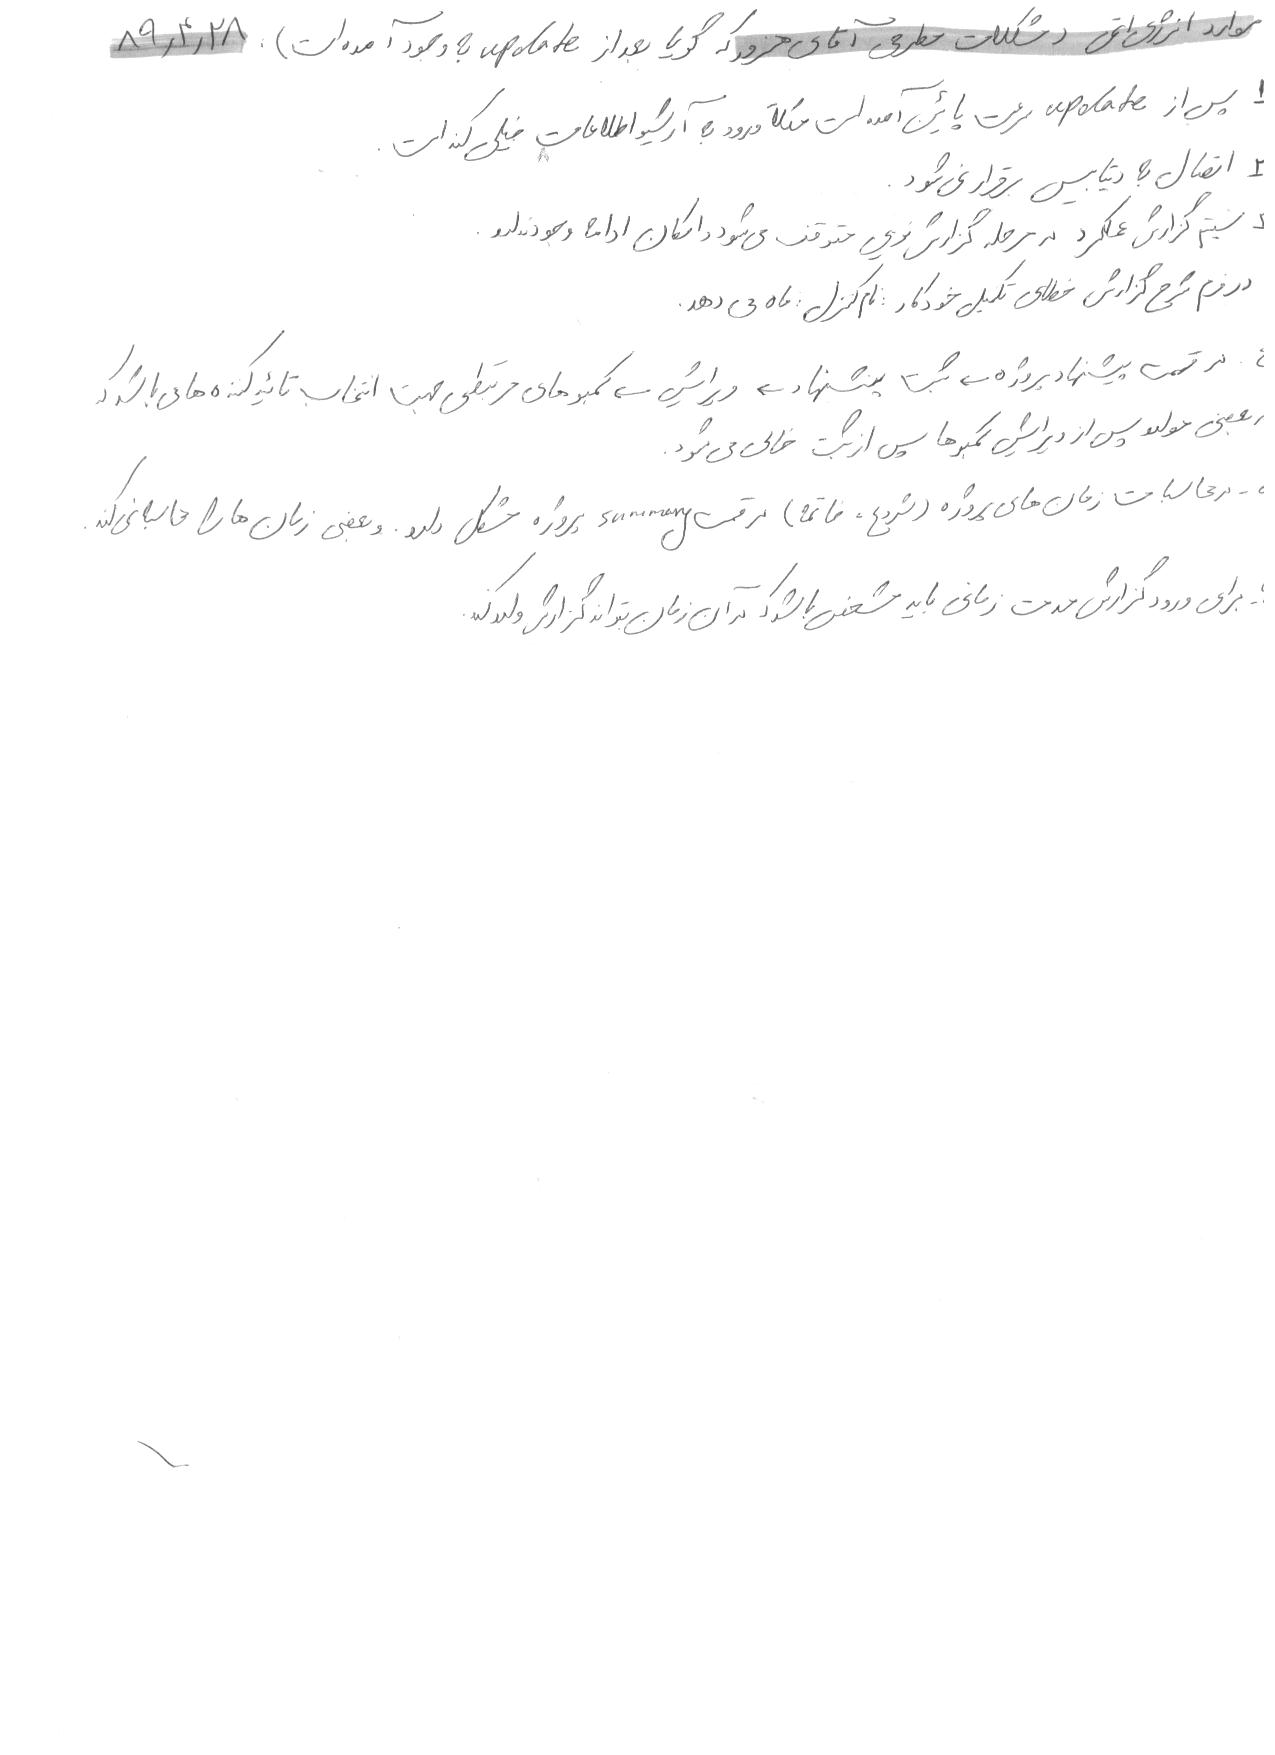 موارد انرژی اتمی (مشکلات مطرحی آقای که گویا بعد از update به وجود آمده است) : ۸۹٫۴٫۲۸
۱ پس از update سرعت پائین آمده است مثلاً ورود به آرشیو اطلاعات خیلی کند است .
۲ اتصال به دیتابیس برقرار نمی شود .
سیستم گزارش عملکرد در مرحله گزارش نویسی متوقف می شود و امکان ادامه وجود ندارد .
در فرم شرح گزارش خطای تکمیل خودکار : نام کنترل : ماه می دهد .
در قسمت پیشنهاد پروژه ← ثبت پیشنهاد ← ویرایش ← کمبوهای مرتبطی جهت انتخاب تائید کننده هامی باشد که
در بعضی موارد پس از ویرایش کمبوها پس از ثبت خالی می شود .
۵ - در محاسبات زمان های پروژه (شروع ، خاتمه) در قسمت summary پروژه مشکل دارد . و بعضی زمان ها را محاسبه نمی کند .
برای ورود گزارش مدت زمانی باید مشخص باشد که در آن زمان بتواند گزارش وارد کند .